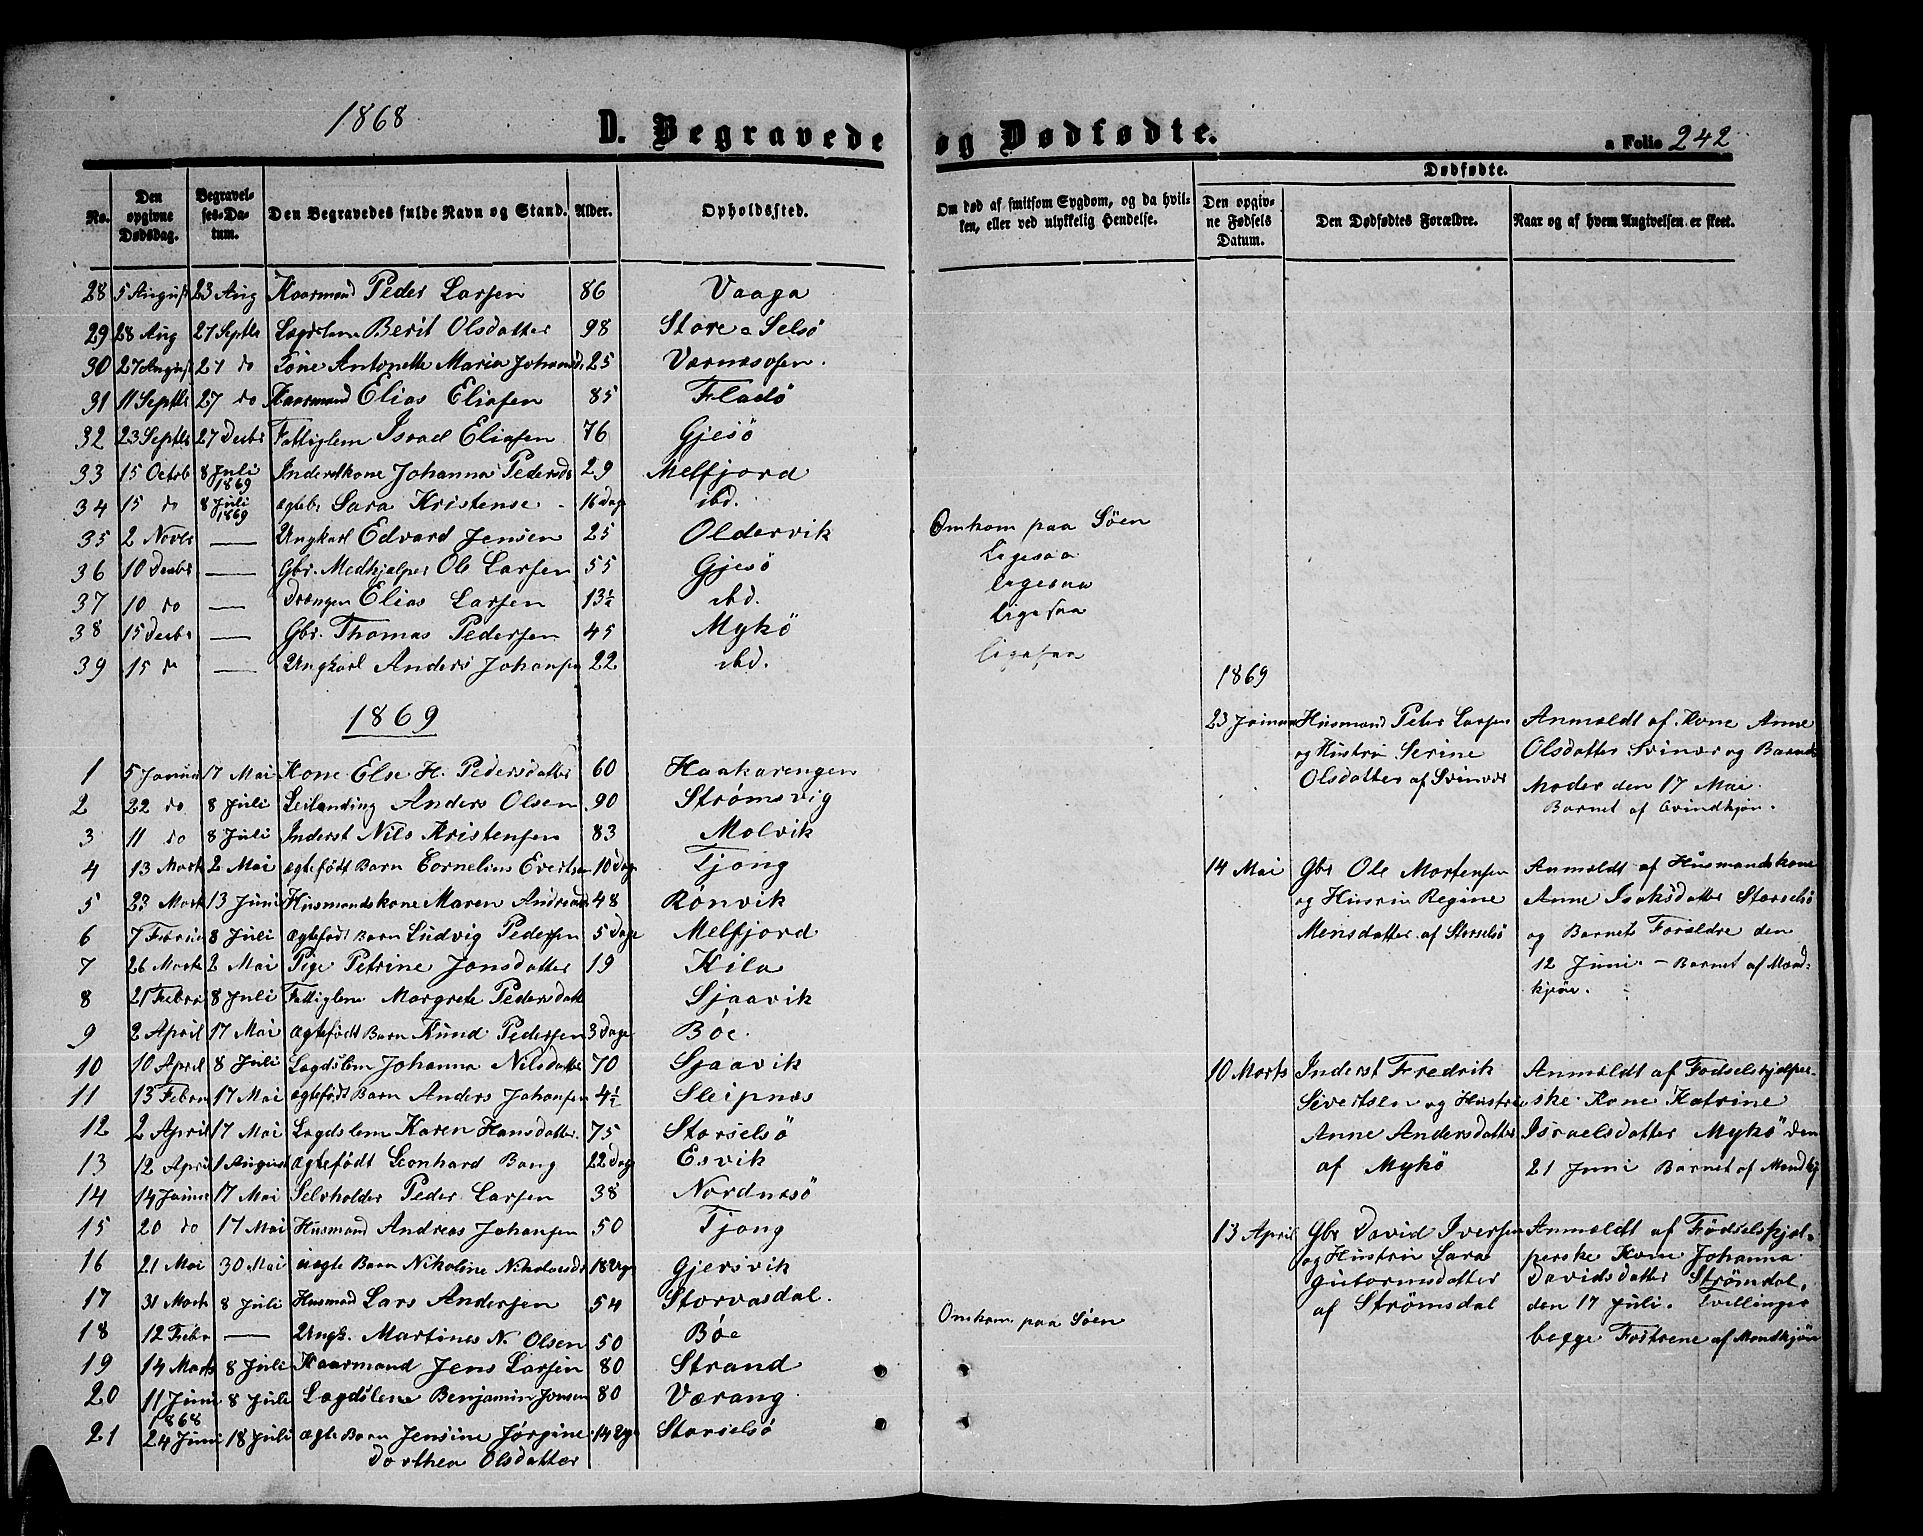 1868
D. Begravede og Dødfødte.
a Folio 242
No. Den opgivne Dødsdag. Begravelses-Datum. Den Begravedes fulde Navn og Stand. Alder. Opholdssted. Om død af smitsom Sygdom, og da hvilken, eller ved ulykkelig Hendelse. Dødfødte. Den opgivne Fødsels Datum. Den Dødfødtes Forældre. Naar og af hvem Angivelsen er skeet.
28 5 August 23 Aug Kaarmand Peder Larsen 86 Vaaga
29 28 Aug 27 Septbr Lægdslem Berit Olsdatter 98 Store Selsö
30 27 August 27 do Antonette Maria 25 Værnæsosen.
31 11 Septbr 27 do Kaarmand Elias Eliasen 85 Fladö
32 23 Septbr 27 Decbr Fattiglem Israel Eliasen 76 Gjesö
33 15 Octob 8 Juli 1869 Inderstkone Johanna Pedersdr 29 Melfjord
34 15 do 8 Juli 1869 ægteb Sara Kristense - 16 Dage ibd.
35 2 Novbr — Ungkarl Edvard Jensen 25 Oldervik Omkom paa Söen
36 10 Decbr — Gbr. Medhjelper Ole Larsen 55 Gjesö Ligesaa
37 10 do — Drengen Elias Larsen 13½ ibd. ligesaa
38 15 Decbr — Gbr. Thomas Pedersen 45 Mykö ligesaa
39 15 do — Ungkarl Anders Johansen 22 ibd. ligesaa
1869
1 5 Januar 17 Mai Kone Else H. Pedersdatter 60 Haakarengen
2 22 do 8 Juli Leilænding Anders Olsen 90 Strømsvig
3 11 do 8 Juli Inderst Nils Kristensen 83 Molvik
4 13 Mart 2 Mai ægtefödt Barn Cornelius Evertsen 10 Dage Tjong
5 23 Mart 13 Juni Husmandskone Maren 48 Rönvik
6 7 Februar 8 Juli ægtefödt Barn Ludvig Pedersen 5 Dage Melfjord
7 26 Mart 2 Mai Pige Petrine Jonsdatter 19 Kila
8 21 Febru 8 Juli Fattiglem Margrete Pedersdatt Sjaavik
9 2 April 17 Mai ægtefödt Barn Knud Pedersen 3 Dage Böe.
10 10 April 8 Juli Lægdslem Johanna Nilsdatter 70 Sjaavik
11 13 Febru 17 Mai ægtefödt Barn Anders Johansen 4½ Sleipnæs
12 2 April 17 Mai Lægdslem Karen Hansdatter. 75 Storselsö
13 12 April 1 August ægtefödt Leonhard Bang 22 Dage Esvik
14 14 Januar 17 Mai Selvholder Peder Larsen 38 Nordnæsö
15 20 do 17 Mai Husmand Andreas Johansen 50 Tjong
16 21 Mai 30 Mai uægte Barn Nikoline Nikolaisdr 18 Uger Gjersvik
17 31 Mart 8 Juli Husmad Lars Andersen 54 Storvasdal.
18 12 Febr — Ungk. Martines N. Olsen 50 Böe Omkom paa Söen
19 14 Marts 8 Juli Kaarmand Jens Larsen 80 Strand
20 11 Juni 8 Juli Lægdslem Benjamin Jonsen 80 Værang
21 1868 24 Juni 18 Juli ægte Barn Jensine Jörgine 14 Uger Storselsö
Dorthea Olsdatter
1869
23 Januar Husmand Peter Larsen
og Hustru Serine
Olsdatter af Svinvær
Anmeldt af Kone Anne
Olsdatter Svinvær og Barnets
Moder den 17 Mai.
Barnet af Qvindkjön.
14 Mai Gbr Ole Mortensen
og Hustru Regine
Mensdatter af Storselsö
Anmeldt af Husmandskone
Anne Isaksdatter Storselsö
og Barnets Foreldre den
12 Juni. — Barnet af Mand-
kjön.
10 Marts Inderst Fredrik
Sivertsen og Hustru
Anne Andersdatter
af Mykö
Anmeldt af Fodselshjelper-
ske Kone Katrine
Israelsdatter Mykö den
21 Juni Barnet af Mandkj
13 April Gbr David Iversen
og Hustru Sara
Gutormsdatter
af Strömsdal
Anmeldt af Födselshjel-
perske Kone Johanna
Davidsdatter Strömdal,
den 17 Juli. Tvillinger
begge Fostrene af Mandkjön